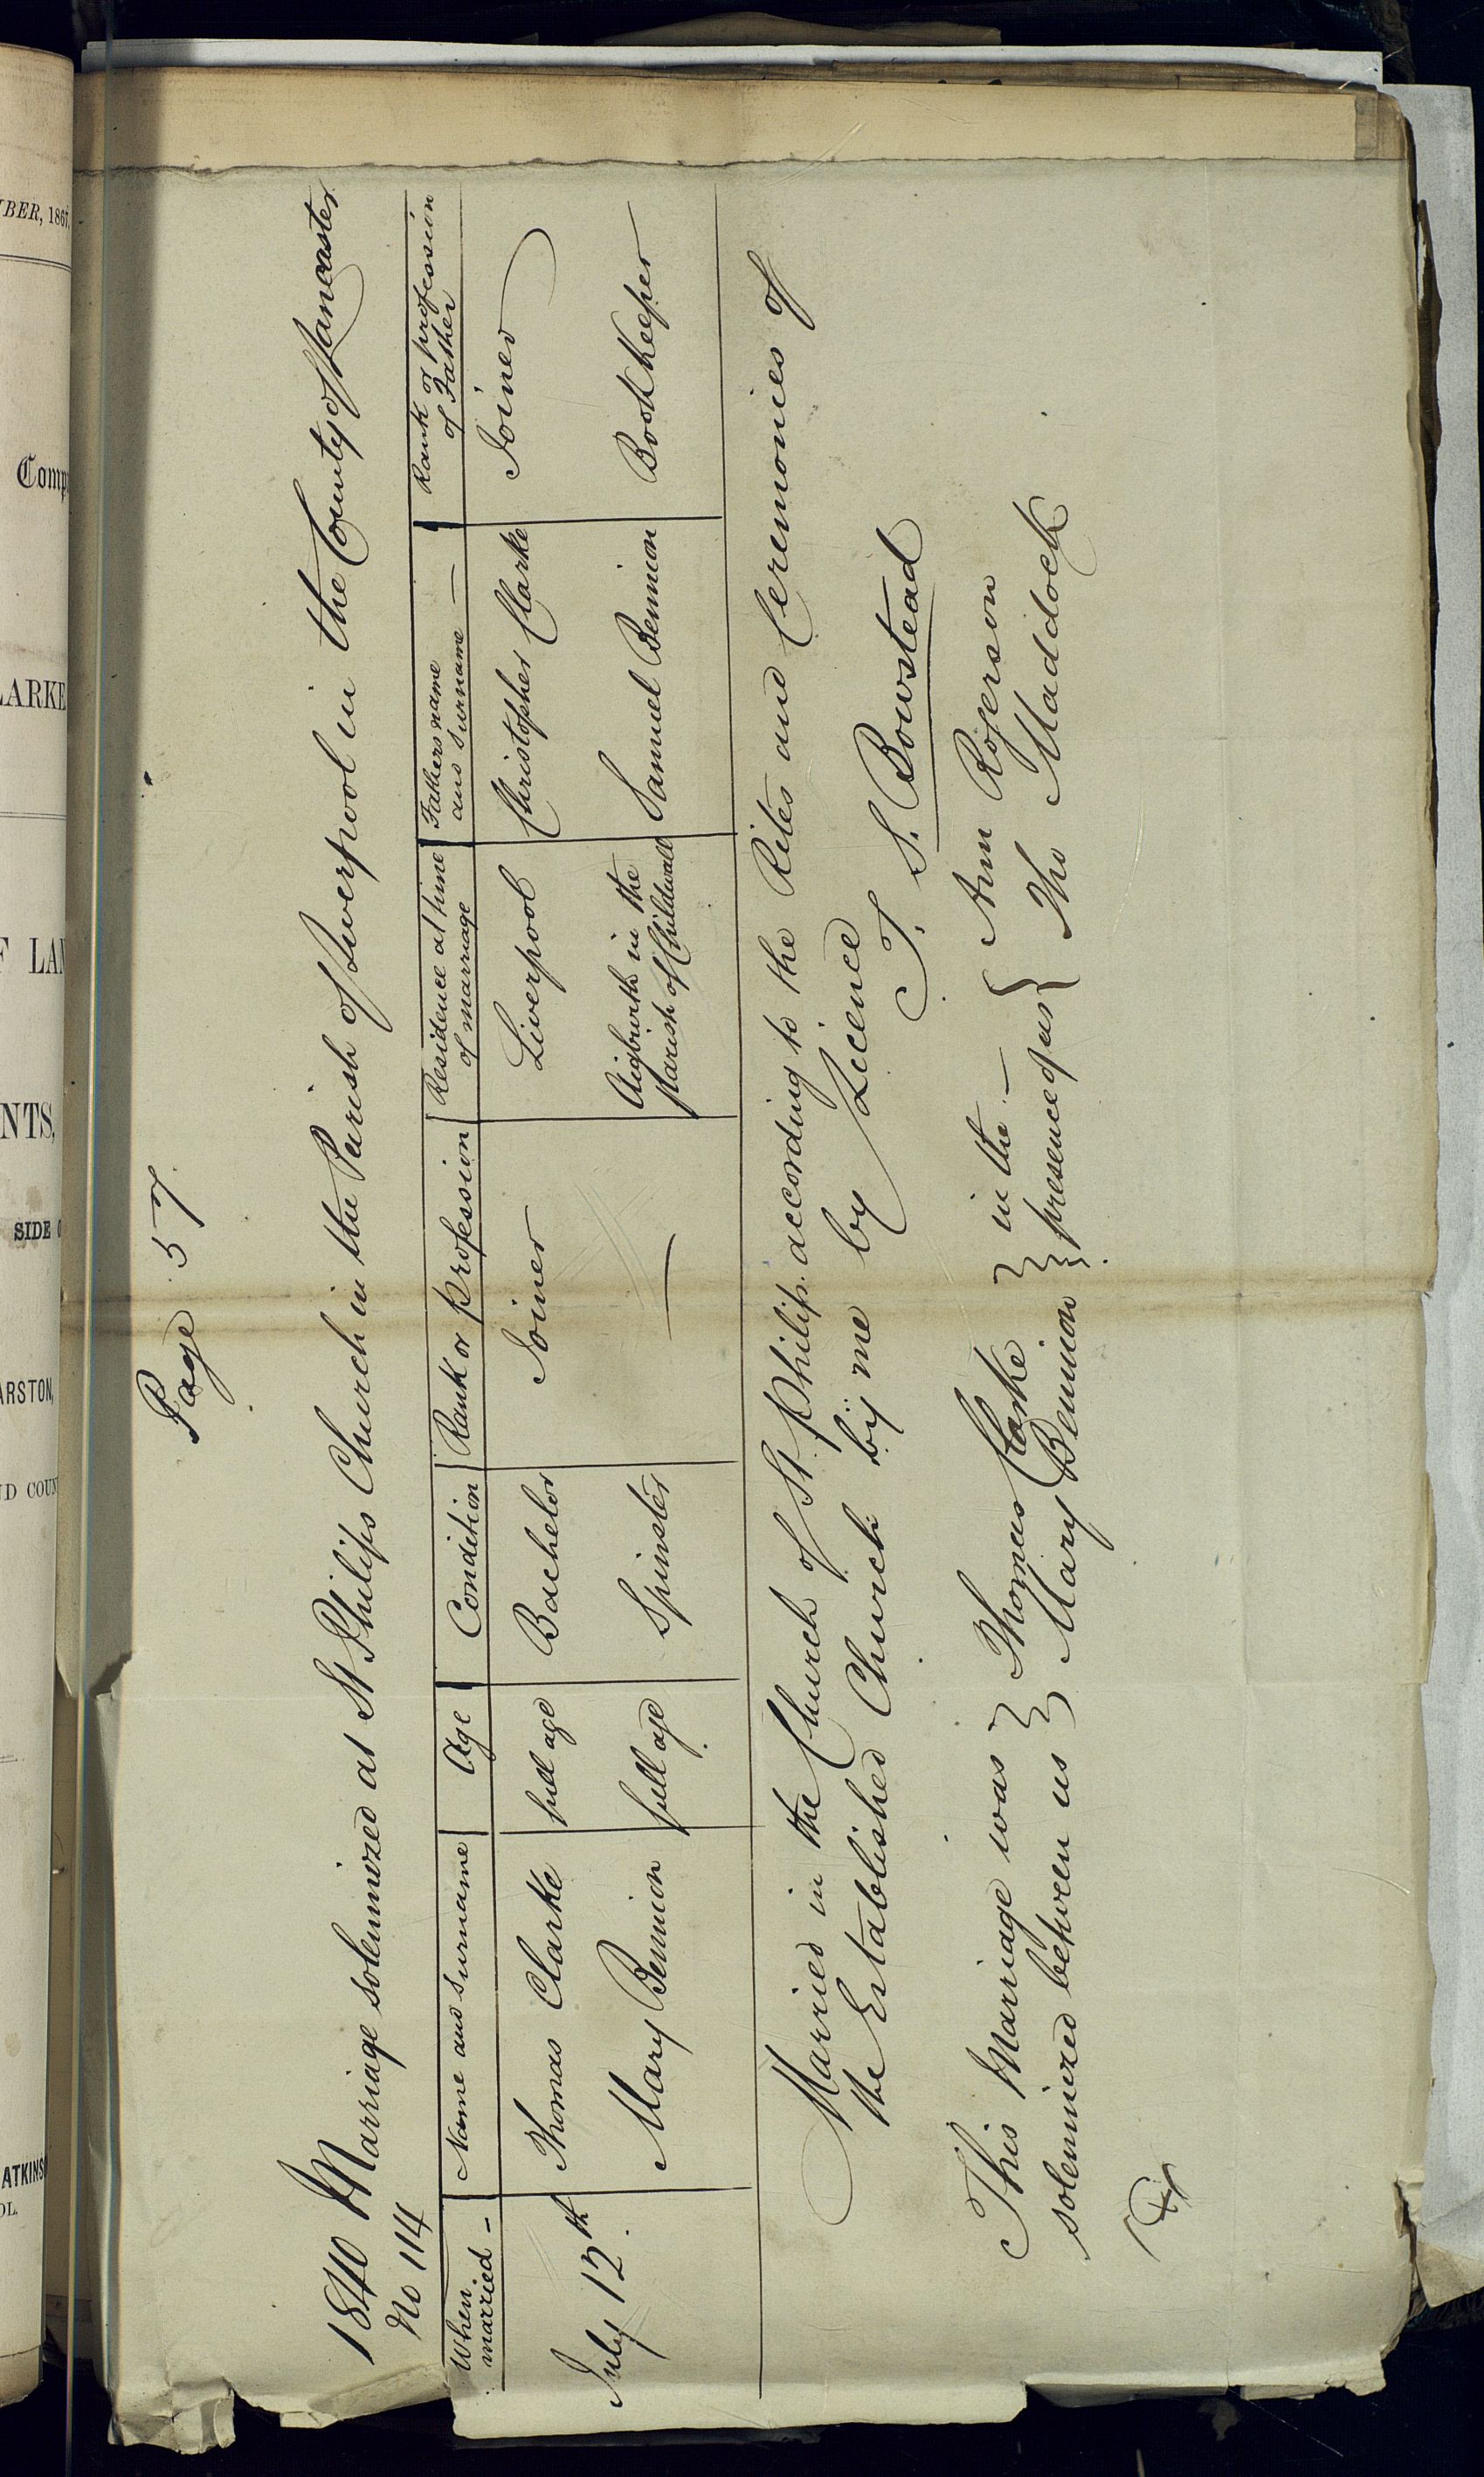 Page 57
1840 Marriage solemnized at St Philips Church in the Parish of Liverpool in the County of Lancaster
No 114
When married – | Name and surname | Age | Condition | Rank or profession | Residence at time of marriage | Fathers name and surname — | Rank or profession of Father
July 12th | Thomas Clarke | full age | Bachelor | Joiner | Liverpool | Christopher Clarke | Joiner
Mary Bennion | full age | Spinster | — | Aigburth in the parish of Childwall | Samuel Bennion | Bookkeeper
Married in the Church of St. Philip. according to the Rites and Ceremonies of
the Established Church by me by Licence
T. S. Bowstead
This Marriage was } Thomas Clarke } in the — { Ann Rogerson
solemnized between us } Mary Bennion } presence of us { Tho Maddock
BER, 1867.
Comp
LARKE
F LAN
NTS,
SIDE
ARSTON,
ND COUN
ATKINS
OL.